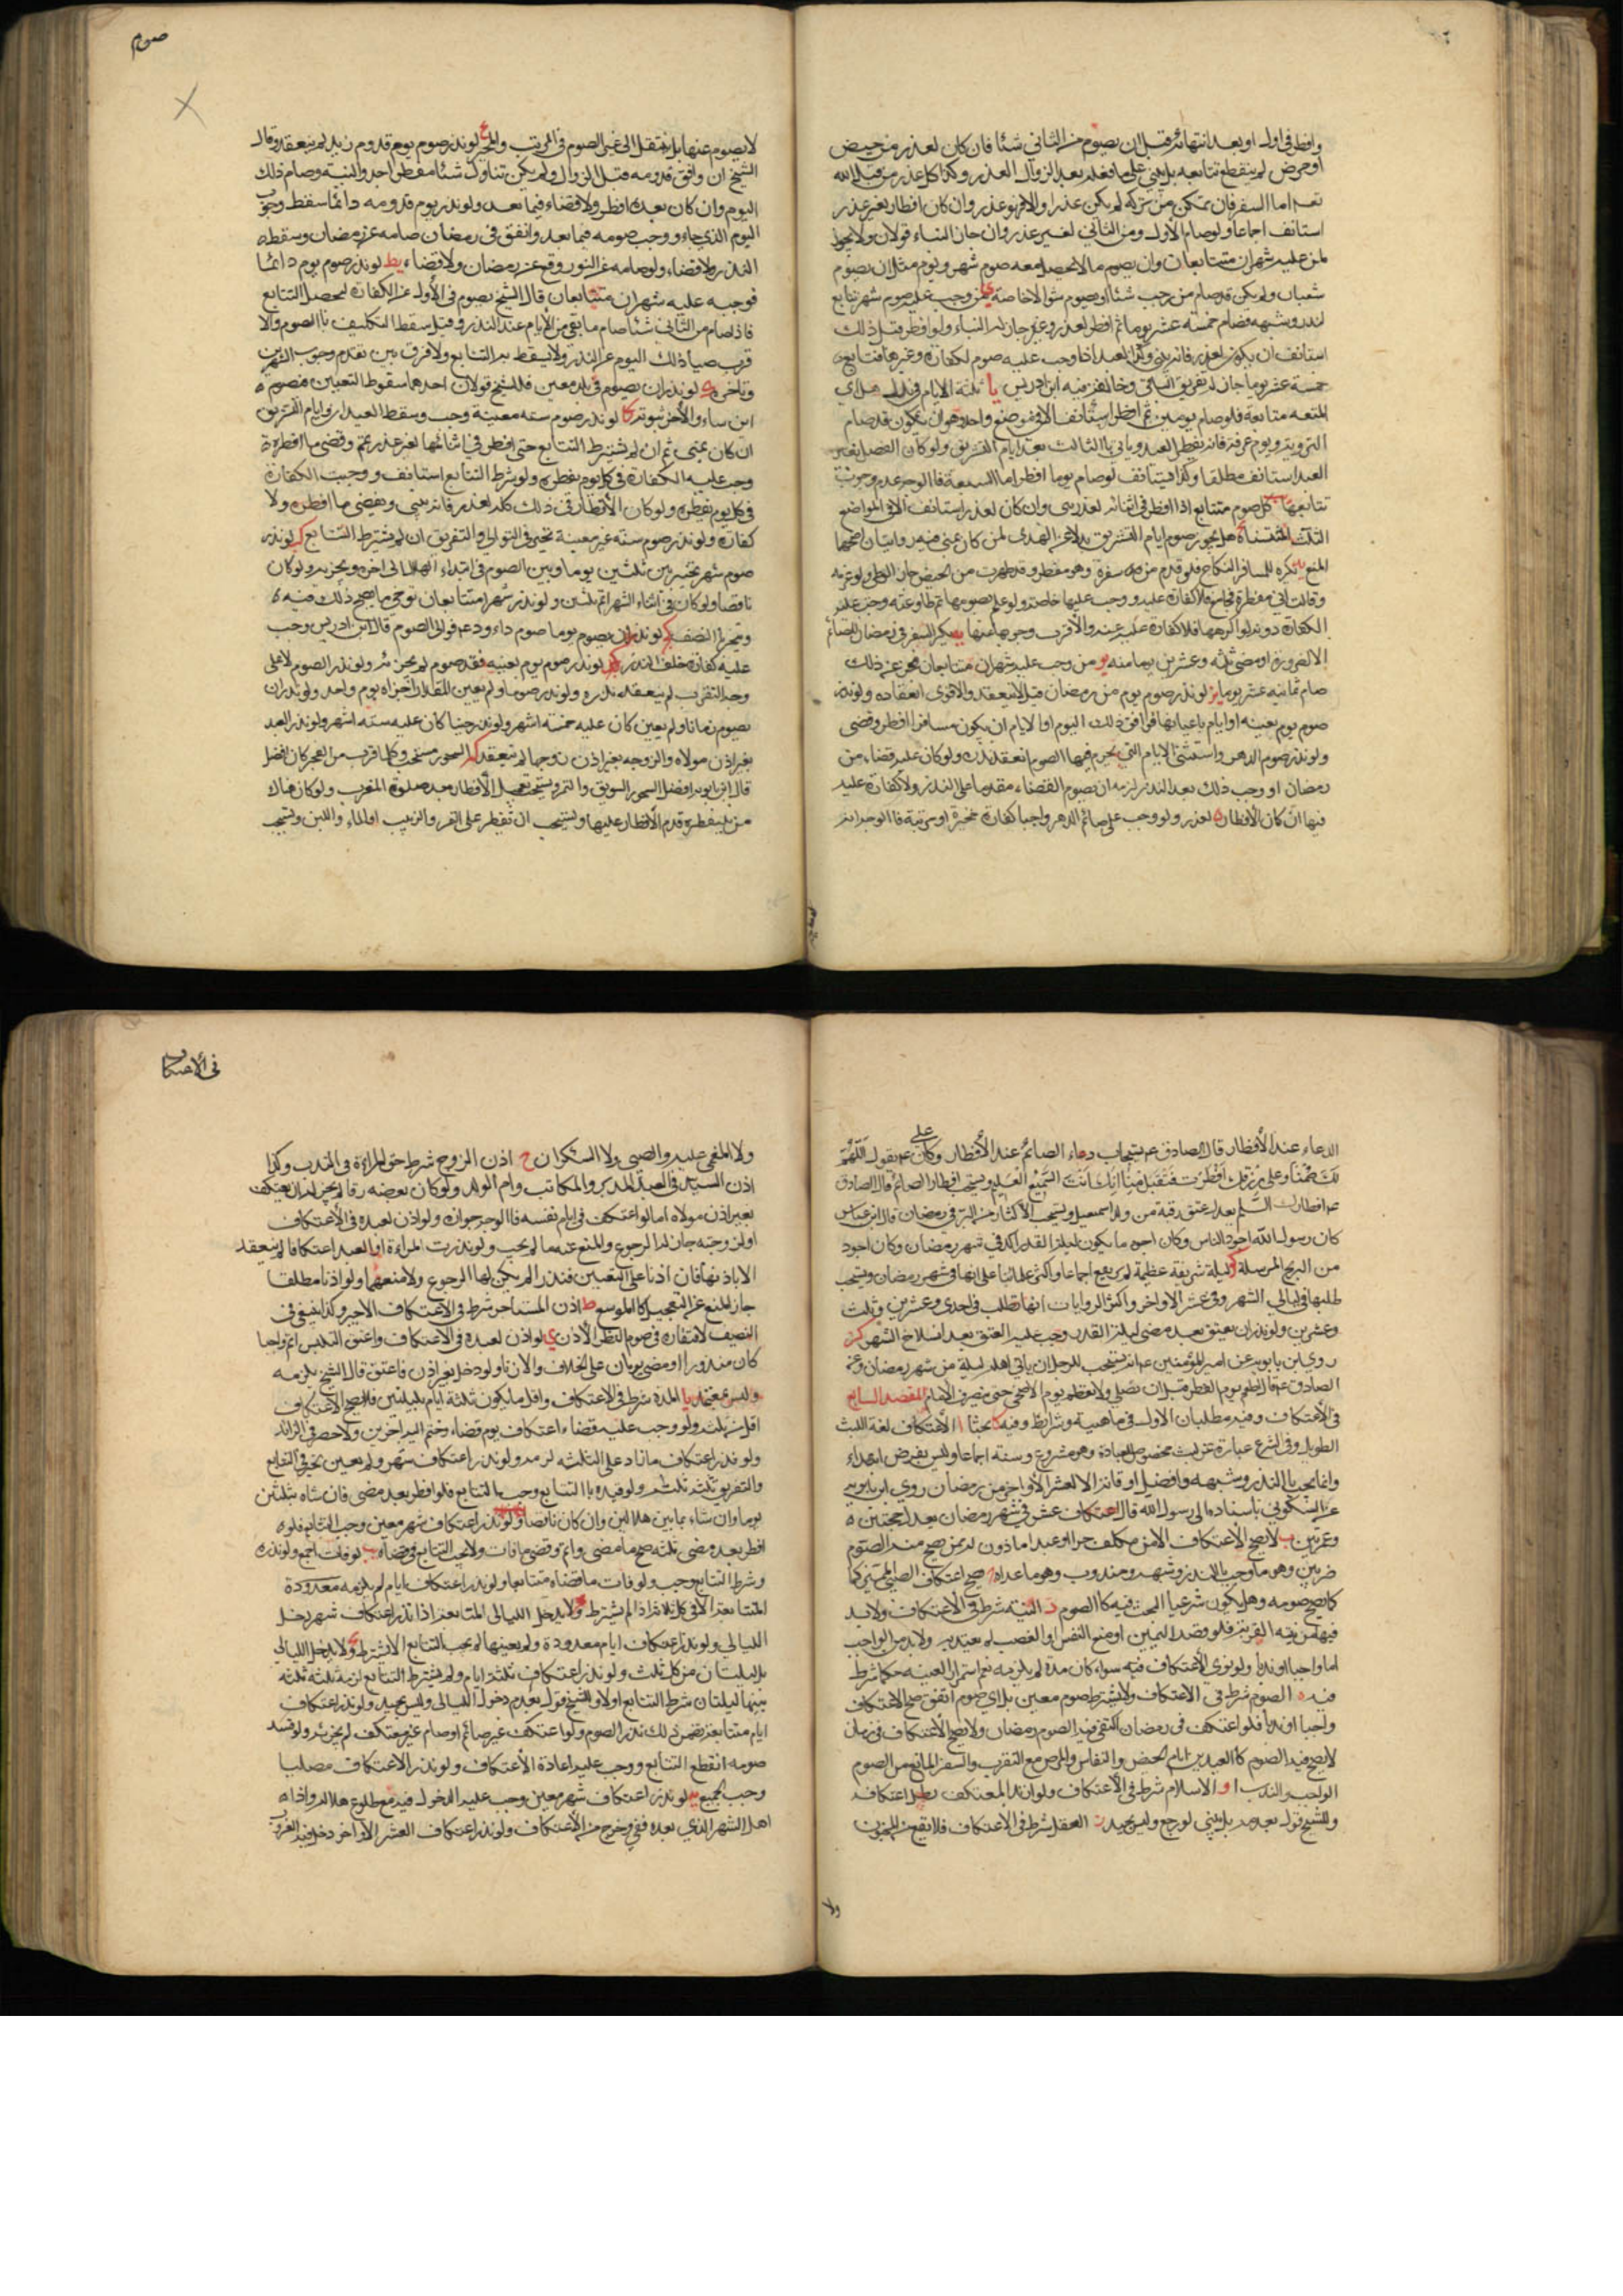 وافطر في اوله او بعد انتهائه قبل ان يصوم من الثاني شئا فان كان لعذر من حيض
او مرض لم ينقطع تتابعه بل يبني على ما فعله بعد زوال العذر وكذا كل عذر من قبل الله
تعـ اما السفر فان تمكن من تركه لم يكن عذرا والا فهو عذر وان كان افطاره لغير عذر
استانف اجماعا ولو صام الأول ومن الثاني لغير عذر وان جاز البناء قولان ولا يجوز
لمن عليه شهران متتابعان وان يصوم ما لا يحصل معه صوم شهر ويوم مثل ان يصوم
شعبان ولم يكن قد صام من رجب شئا او يصوم شوالا خاصة ى من وجب عليه صوم شهر تتابع
لنذر وشبهه فصام خمسة عشر يوما ثم افطر لعذر وغيره جاز له البناء ولو افطر قبل ذلك
استانف ان يكون لعذر فانه يبني وكذا العبد اذا وجب عليه صوم لكفارة وغيرها فتابع
خمسة عشر يوما جاز له تفريق الباقي وخالف فيه ابن ادريس يا ثلثة الايام في بدل هدي
المتعه متتابعة فلو صام يومين ثم افطر استأنف الا في موضع واحد وهو ان يكون قد صام
التروية ويوم عرفة فانه يفطر العيد وياتي بالثالث بعد ايام التشريق ولو كان الفصل بغير
العيد استانف مطلقا وكذا يستانف لو صام يوما افطر اما السبعة فالوجه عدم وجوب
تتابعها يب كل صوم متتابع اذا افطر في اثنائه لعذر بنى وان كان لغير عذر استانف الا في المواضع
الثلث المستثناة هل يجوز صوم ايام التشريق بدلا عن الهدي لمن كان بمنى فيه روايتان اصحهما
المنع يد يكره للمسافر النكاح فلو قدم من سفره وهو مفطر وقد طهرت من الحيض جاز الوطي ولو غرته
وقالت اني مفطرة فجامع فلا كفارة عليه ووجب عليها خاصة ولو علم بصومها ثم طاوعته وجب عليه
الكفارة دونه لو اكرهها فلا كفارة عليه عنه والأقرب وجوبها عنها يه يكره السفر في رمضان للصائم
الا لضرورة او مضي ثلثة وعشرين يوما منه يو من وجب عليه شهران متتابعان فعجز عن ذلك
صام ثمانيه عشر يوما يز لو نذر صوم يوم من رمضان قيل لا ينعقد والاقوى انعقاده ولو نذر
صوم يوم بعينه او ايام باعيانها فوافق ذلك اليوم او الايام ان يكون مسافرا افطر وقضى
ولو نذر صوم الدهر واستثنى الايام التي يحرم فيها الصوم انعقد نذره ولو كان عليه قضاء من
رمضان او وجب ذلك بعد النذر لزمه ان يصوم القضاء مقدما على النذر ولا كفارة عليه
فيها ان كان الأفطار لعذر ولو وجب على صائم الدهر واجبا كفارة مخيرة او مرتبة فالوجه انه
صوم
لا يصوم عنها بل ينتقل الى غير الصوم في المرتب والمخير يح لو نذر صوم يوم قدوم زيد لم ينعقد وقال
الشيخ ان وافق قدومه قبل الزوال ولم يكن تناول شئا مفطرا جدد النية وصام ذلك
اليوم وان كان بعده افطر ولا قضاء فيما بعد ولو نذر يوم قدومه دائما سقط وجوب
اليوم الذي جاء ووجب صومه فيما بعد وان اتفق في رمضان صامه عن رمضان وسقط
النذر ولا قضاء ولو صامه عن النذر وقع عن رمضان ولا قضاء يط لو نذر صوم يوم دائما
فوجب عليه شهران متتابعان قال الشيخ يصوم في الأول عن الكفارة ليحصل التتابع
فاذا صام من الثاني شئا صام ما بقي من الأيام عن النذر وقيل سقط التكليف بالصوم والا
قرب صيام ذلك اليوم عن النذر ولا يسقط به التتابع ولا فرق بين تقدم وجوب الشهرين
وتأخره ك لو نذر ان يصوم في بلد معين فللشيخ قولان احدهما سقوط التعيين فيصوم
اين شاء والأخر ثبوته كا لو نذر صوم سنه معينة وجب وسقط العيدان وايام التشريق
ان كان بمنى ثم ان لم يشترط التتابع حتى افطر في اثنائها لغير عذر اتم وقضى ما افطره
وجب عليه الكفارة في كل يوم يفطره ولو شرط التتابع استانف ووجبت الكفارة
في كل يوم يفطره ولو كان الأفطار في ذلك كله لعذر فانه يبني ويقضي ما افطره ولا
كفارة ولو نذر صوم سنه غير معينة تخير في التوالي والتفريق ان لم يشترط التتابع كب لو نذر
صوم شهر تخير بين ثلثين يوما وبين الصوم في ابتداء الهلال الى اخره ويجزيه ولو كان
ناقصا ولو كان في اثناء الشهر اتم ثلثين ولو نذر شهرا متتابعان توخى ما يصح ذلك فيه
ويجزيه النصف كج لو نذر ان يصوم يوما صوم داود عم فوالى الصوم قال ابن ادريس وجب
عليه كفارة خلف النذر كد لو نذر صوم يوم بعينه فقدم صومه لم يجزئه ولو نذر الصوم لا على
وجه التقرب لم ينعقد نذره ولو نذر صوما ولم يعين المقدار اجزاه يوم واحد ولو نذر ان
يصوم زمانا ولم يعين كان عليه خمسة اشهر ولو نذر حينا كان عليه ستة اشهر ولو نذر العبد
بغير اذن مولاه والزوجه بغير اذن زوجها لم ينعقد كه السحور مستحب وكلما قرب من الفجر كان افضل
قال ابن بابويه افضل السحور السويق والتمر ويستحب تعجيل الأفطار بعد صلوة المغرب ولو كان هناك
من ينتظره قدم الأفطار عليها ويستحب ان يفطر على التمر والزبيب او الماء واللبن ويستحب
الدعاء عند الأفطار قال الصادق عم يستجاب دعاء الصائم عند الأفطار وكان على عم يقول اللهم
لك صمنا وعلى رزقك افطرت فتقبل منا انك انت السميع العليم ويستحب افطار الصائم قال الصادق
عم افطارك المسلم يعدل عتق رقبة من ولد اسمعيل ويستحب الأكثار من البر في رمضان قال ابن عباس
كان رسول الله اجود الناس وكان اجود ما يكون في شهر رمضان وكان اجود
من الريح المرسلة كو ليلة شريفة عظيمة لم يرفع اجماعا واكثر علمائنا على انها في شهر رمضان ويستحب
طلبها في ليالي الشهر وفي عشر الاواخر واكثر الروايات انها تطلب في احدى وعشرين وثلث
وعشرين ولو نذر ان يعتق بعد مضي ليلة القدر وجب عليه العتق بعد انسلاخ الشهر كز
روى ابن بابويه عن امير المؤمنين عم انه يستحب للرجل ان ياتي اهله اول ليلة من شهر رمضان وعن
الصادق عم قال اطعم يوم الفطر قبل ان تصلي ولا تطعم يوم الاضحى حتى ينصرف الامام المقصد السابع
في الأعتكاف وفيه مطلبان الاول في ماهيته وشرايطه وفيه بحثا ا الأعتكاف لغة اللبث
الطويل وفي الشرع عبارة عن لبث مخصوص للعبادة وهو مشروع وسنة اجماعا وليس بفرض ابتداء
وانما يجب بالنذر وشبهه وافضل اوقاته العشر الأواخر من رمضان روى ابن بابويه
عن السكوني باسناده الى رسول الله قال اعتكاف عشر في شهر رمضان يعدل حجتين
وعمرتين ب لا يصح الأعتكاف الا من مكلف حر او عبد ماذون له ممن صح منه الصوم
ضربين وهو ما وجب بالنذر وشبهه ومندوب وهو ما عداه صح اعتكاف الصبي المميز كما
كان يصح صومه وهل يكون شرعيا البحث فيه كالصوم د النيه شرط في الأعتكاف ولابد
فيها من نية القربة فلو قصد اليمين او منع النفس او الغضب لم يعتد به ولابد من الواجب
اما واجبا او ندبا ولو نوى الأعتكاف فيه سواء كان مدة لم يلزمه نعم استمرار النيه حكما شرط
فيه ه الصوم شرط في الاعتكاف ولا يشترط صوم معين بل اي صوم اتفق صح الاعتكاف
واجبا او ندبا فلو اعتكف في رمضان اكتفى فيه الصوم رمضان ولا يصح الأعتكاف في زمان
لا يصح فيه الصوم كالعيدين ايام الحيض والنفاس والمرض مع التقرب والسفر المانع من الصوم
الواجب والندب و الاسلام شرط في الأعتكاف ولو ارتد المعتكف بطل اعتكافه
وللشيخ قول بعدمه بل يبني لو رجع وليس بجيد ز العقل شرط في الاعتكاف فلا يقع من المجنون
ولا
في الأعتكاف
ولا المغمى عليه والصبي ولا السكران ح اذن الزوج شرط حق المراءة في المندوب وكذا
اذن السيد في العبد المدبر والمكاتب وام الولد ولو كان بعضه رقا لم يجز له ان يعتكف
بغير اذن مولاه اما لو اعتكف في ايام نفسه فالوجه جوازه ولو اذن لعبده في الأعتكاف
اولزوجته جاز له الرجوع والمنع عنه ما لم يجب ولو نذرت المراءة او العبد اعتكافا لم ينعقد
الا باذنهما فان اذنا على التعيين فنذرا لم يكن لهما الرجوع ولا منعهما ولو اذنا مطلقا
جاز المنع عن التعجيل كالموسع ط اذن المستاجر شرط في الأعتكاف الاجير وكذا ينبغي في
الضيف لافتقاره في صوم التطوع الى الأذن ي لو اذن لعبده في الأعتكاف واعتق التلبس اتم واجبا
كان منذورا او مضى يومان على الخلاف والا ندبا ولو دخل بغير اذن فاعتق قال الشيخ يلزمه
وليس بمعتمد يا المدة شرط في الاعتكاف واقل ما يكون ثلثة ايام بليلتين فلا يصح الأعتكاف
اقل من ثلث ولو وجب عليه قضاء اعتكاف يوم قضاه وضم اليه اخرين ولا حصر في الزائد
ولو نذر اعتكاف ما زاد على الثلثه لزمه ولو نذر اعتكاف شهر ولم يعين تخير في التتابع
والتفريق ثلثه ثلثه ولو قيده بالتتابع وجب التتابع فلو افطر بعد مضى فان شاء بثلثين
يوما وان شاء بما بين هلالين وان كان ناقصا ولو نذر اعتكاف شهر معين وجب التتابع فلو
افطر بعد مضى ثلثه صح ما مضى واتم وقضى ما فات ولا يجب التتابع في قضائه يب لو فات اجمع ولو نذره
وشرط التتابع وجب ولو فات ما قضاه متتابعا ولو نذر اعتكاف ايام لم يلزمه معدودة
المتتابعة الا في كل ثلاثة اذا لم يشترط ولا يدخل الليالي المتتابعة اذا نذر اعتكاف شهر دخل
الليالي ولو نذر اعتكاف ايام معدودة ولم يعينها لم يجب التتابع الا يشترط ولا يدخل الليالي
بل ليلتان من كل ثلث ولو نذر اعتكاف ثلثة ايام ولم يشترط التتابع لزمه ثلثة ثلثة
بينها ليلتان شرط التتابع اولا وللشيخ قول بعدم دخول الليالي وليس بجيد ولو نذر اعتكاف
ايام متتابعة تضمن ذلك نذر الصوم ولو اعتكف غير صائم او صام غير معتكف لم يجزئه ولو فسد
صومه انقطع التتابع ووجب عليه اعادة الأعتكاف ولو نذر الاعتكاف مصليا
وجب الجميع يد لو نذر اعتكاف شهر معين وجب عليه الدخول فيه مع طلوع هلاله واذا
اهل الشهر الذي بعده فقد خرج من الأعتكاف ولو نذر اعتكاف العشر الاواخر دخل فيه الغروب